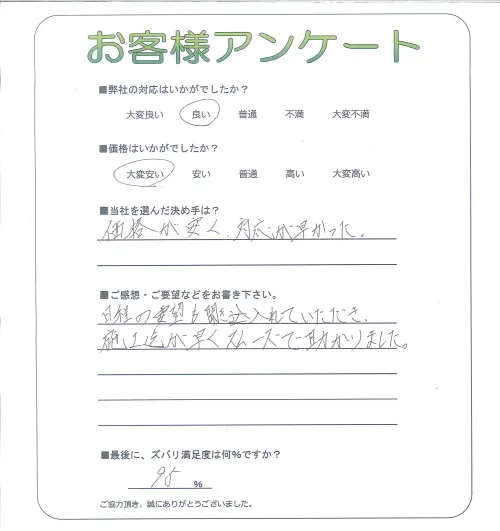 お客様アンケート
■弊社の対応はいかがでしたか?
大変良い 良い 普通 不満 大変不満
■価格はいかがでしたか?
大変安い 安い 普通 高い 大変高い
■当社を選んだ決め手は?
価格が安く、対応が早かった。
■ご感想・ご要望などをお書き下さい。
日程の要望も聞き込入れていただき、
施工迄が早くスムーズで助かりました。
■最後に、ズバリ満足度は何%ですか?
95 %
ご協力頂き、誠にありがとうございました。